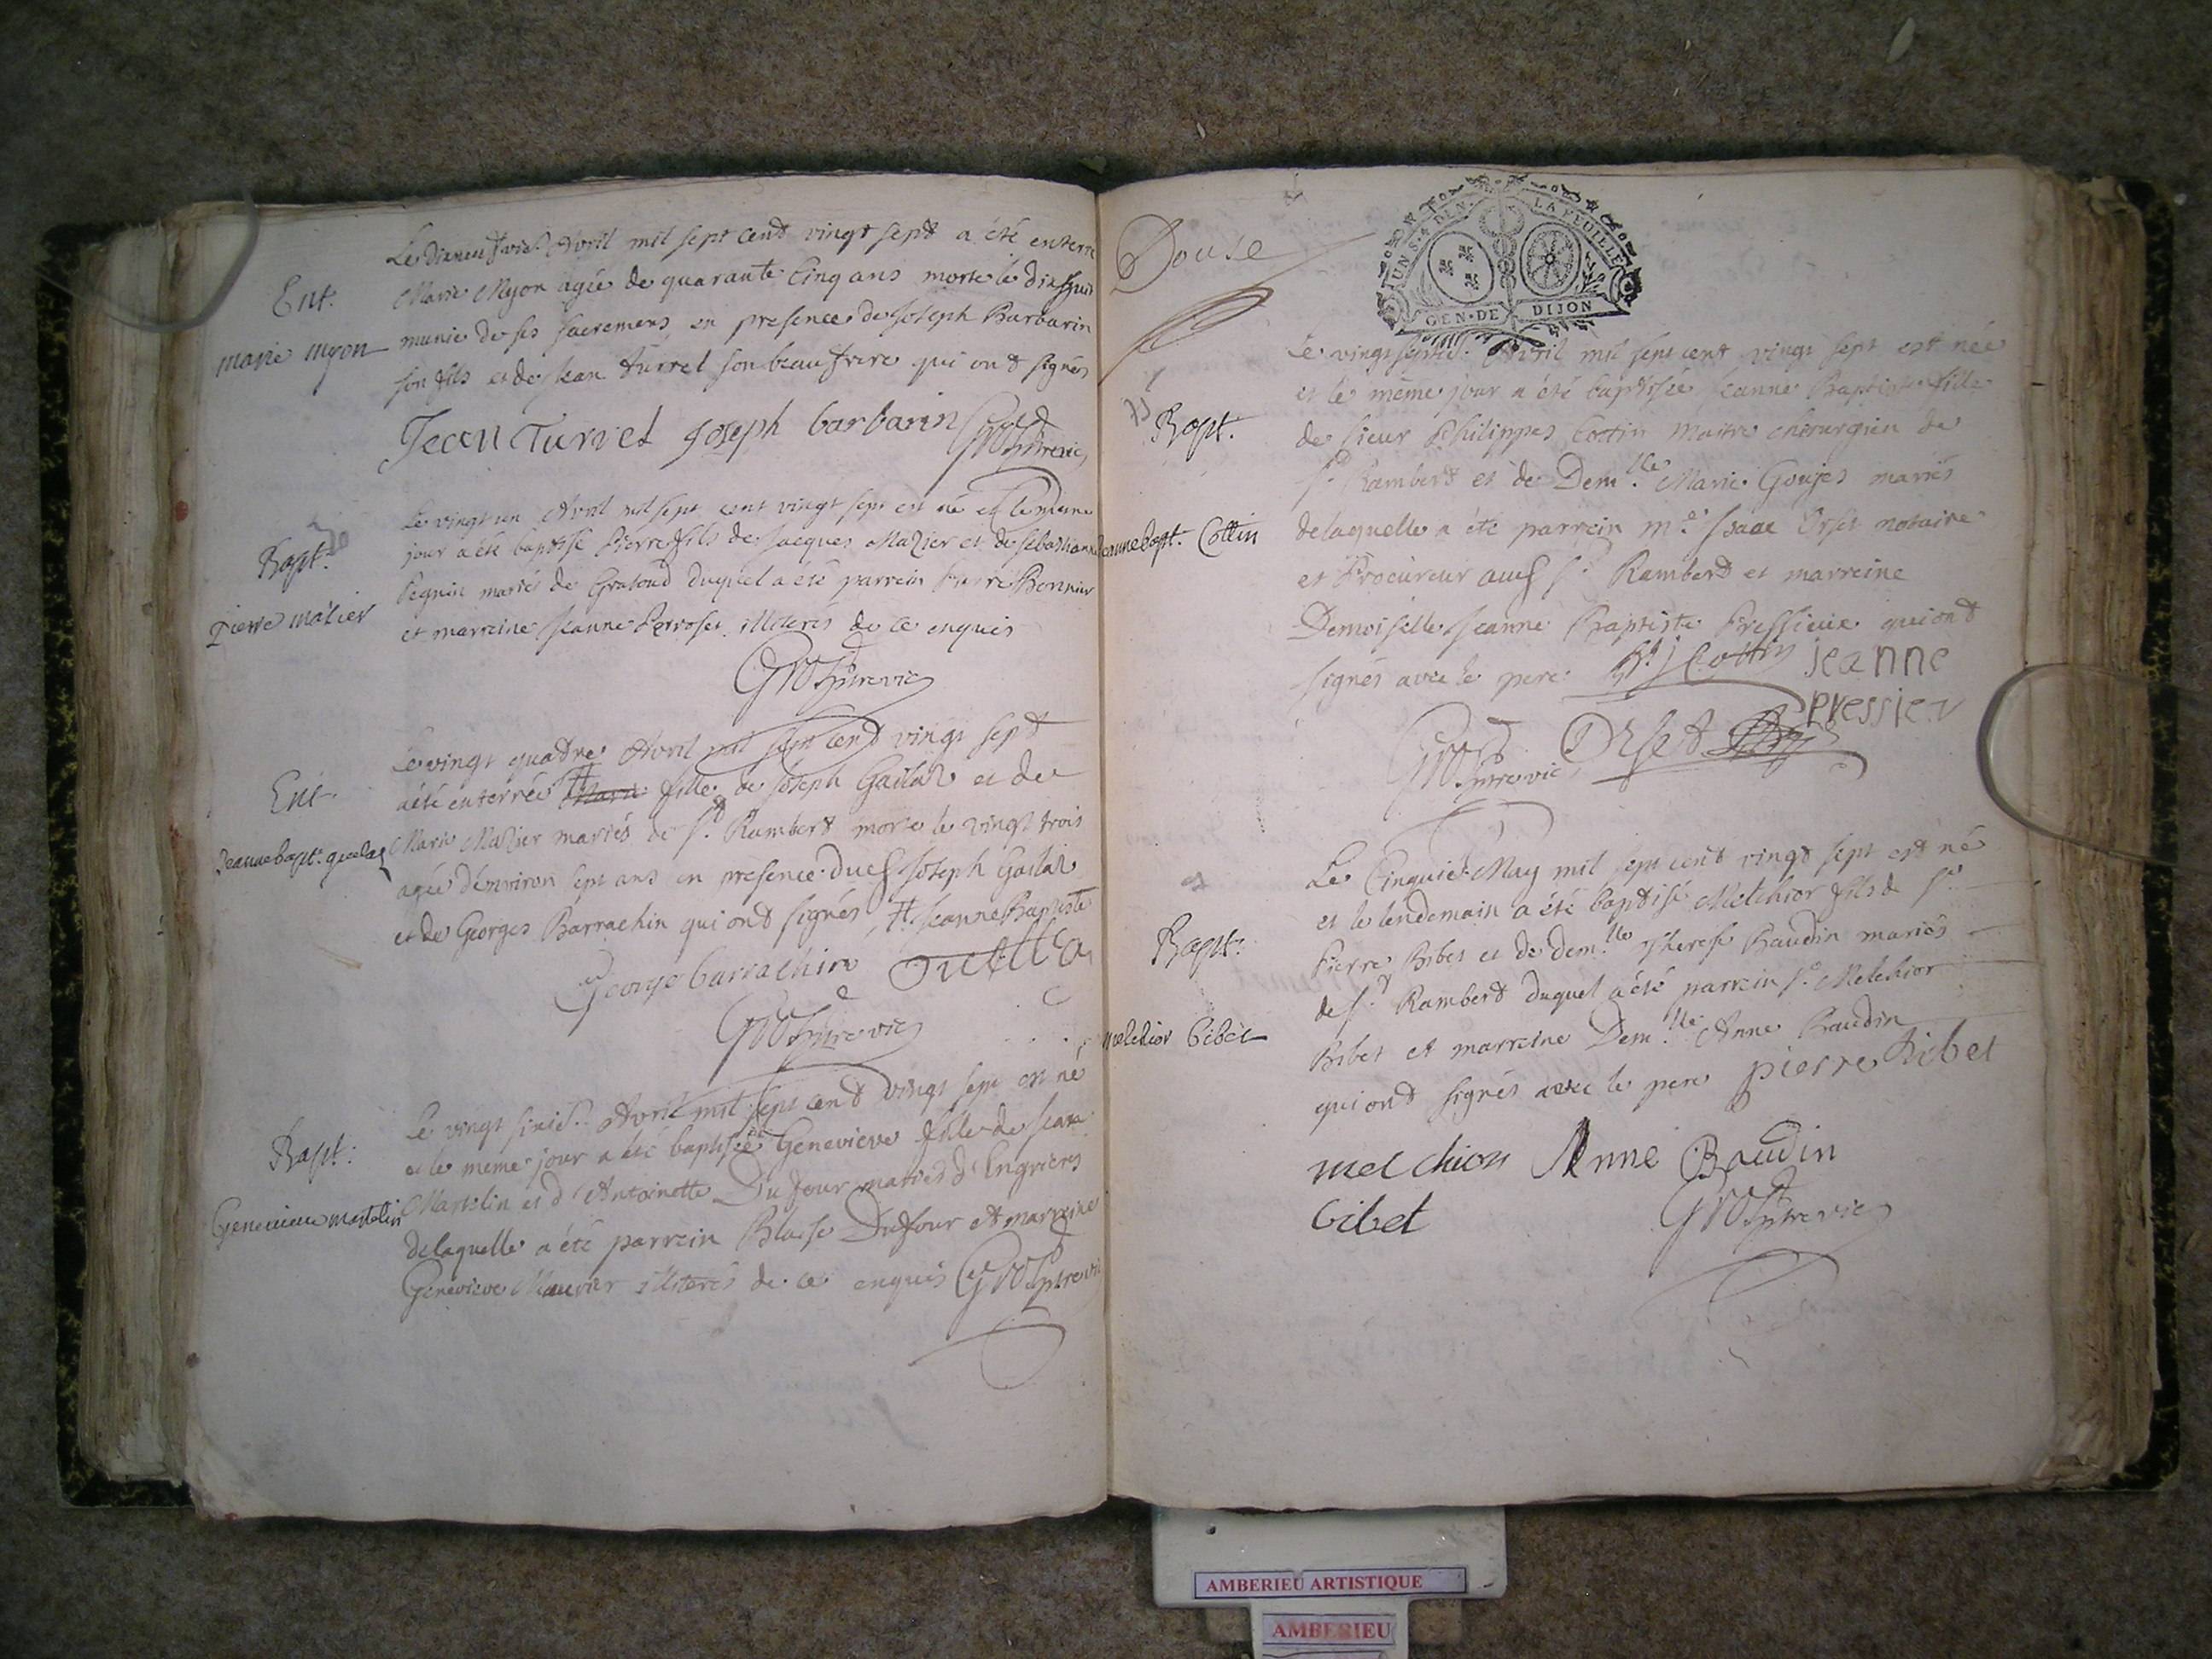 Ent.
marie myon
Le dixneufvie. Avril mil sept cent vingt sept a été enterré
Marie Myon agée de quarante Cinq ans morte le dixhuit
munie de ses sacremens en presence de Joseph Barbarin
son fils et de Jean Turrel son beaufrere qui ont signés
Jean Turrel Joseph barbarin Gros ptre vic
Bapt.
pierre mazier
Le vingt un Avril mil sept cent vingt sept est né et le meme
jour a été baptisé Pierre fils de Jacques Mazier et de Sebastianne
mariés de duquel a été parrein Pierre Bonnier
et marreine Jeanne illiterés de ce enquis
Gros ptre vic
Ent.
Jeanne bapt.
Le vingt quatre Avril mil sept cent vingt sept
a été enterrée # Marie fille de Joseph et de
Marie Mazier mariés de St. Rambert morte le vingt trois
agée d'environ sept ans en presence dud Joseph
et de Georges Barrachin qui ont signés # Jeanne Baptiste
George barrachin
Gros ptre vic
Bapt.
Genevieve martelin
Le vingt sixie. Avril mil sept cent vingt sept est né
et le meme jour a été baptisée Genevieve fille de Jean
Martelin et d'Antoinette Dufour mariés d'Engrieres
delaquelle a été parrein Blaise Dufour et marreine
Genevieve illiterés de ce enquis Gros ptre vic
Douse
UN S. 4 DEN. LA FEUILLE
GEN. DE DIJON
Bapt.
Jeanne bapt. Cottin
Le vingt septie. Avril mil sept cent vingt sept est née
et le même jour a été baptisée Jeanne Baptiste fille
de sieur Philippes Cottin maitre chirurgien de
St. Rambert et de Demlle. Marie Goujes mariés
delaquelle a été parrein me. Isaac Orset notaire
et Procureur aud St. Rambert et marreine
Demoiselle Jeanne Baptiste Pressieux qui ont
signés avec le pere Cottin jeanne
pressieu
Gros ptre vic Orset
Bapt.
melchior bibet
Le Cinquie. May mil sept cent vingt sept est né
et le lendemain a été baptisé Melchior fils de Sr.
Pierre Bibet et de demlle. Therese Baudin mariés
de St. Rambert duquel a été parrein Sr. Melchior
Bibet et marreine Demlle. Anne Baudin
qui ont signés avec le pere pierre bibet
melchior Anne Baudin
bibet Gros ptre vic
AMBERIEU ARTISTIQUE
AMBERIEU